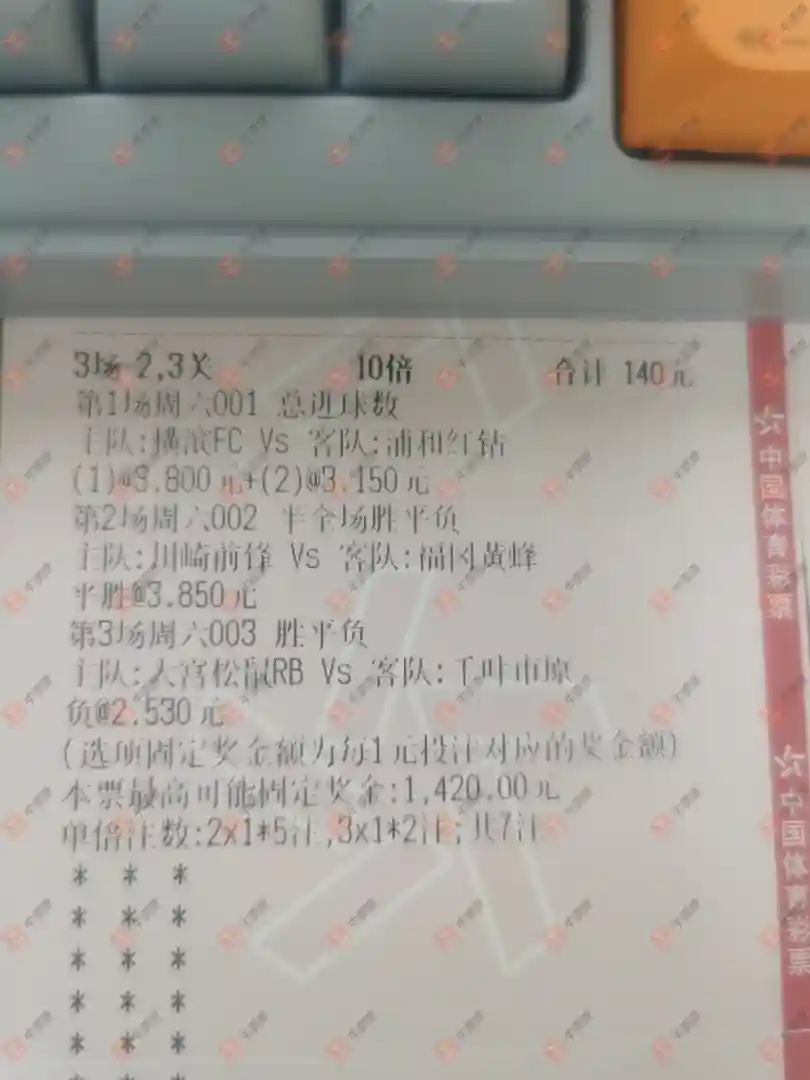 3场 2,3关 10倍 合计 140元
第1场周六001 总进球数
主队:横滨FC Vs 客队:浦和红钻
(1)@3.800元+(2)@3.150元
第2场周六002 半全场胜平负
主队:川崎前锋 Vs 客队:福冈黄蜂
平胜@3.850元
第3场周六003 胜平负
主队:大宫松鼠RB Vs 客队:千叶市原
负@2.530元
(选项固定奖金额为每1元投注对应的奖金额)
本票最高可能固定奖金:1,420.00元
单倍注数:2x1*5注,3x1*2注;共7注
* * *
* * *
* * *
* * *
* * *
中国体育彩票
中国体育彩票